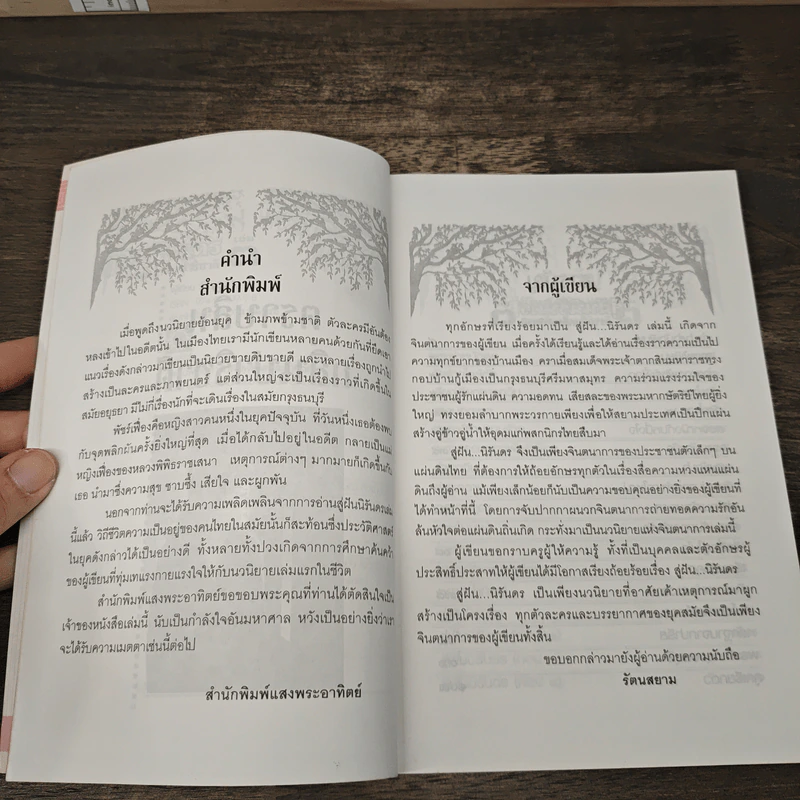 คำนำ
สำนักพิมพ์
เมื่อพูดถึงนวนิยายย้อนยุค ข้ามภพข้ามชาติ ตัวละครมีอันต้อง
หลงเข้าไปในอดีตนั้น ในเมืองไทยเรามีนักเขียนหลายคนด้วยกันที่ยึดเอา
แนวเรื่องดังกล่าวมาเขียนเป็นนิยายขายดิบขายดี และหลายเรื่องถูกนำไป
สร้างเป็นละครและภาพยนตร์ แต่ส่วนใหญ่จะเป็นเรื่องราวที่เกิดขึ้นใน
สมัยอยุธยา มีไม่กี่เรื่องนักที่จะเดินเรื่องในสมัยกรุงธนบุรี
พัชร์เฟื่องคือหญิงสาวคนหนึ่งในยุคปัจจุบัน ที่วันหนึ่งเธอต้องพบ
กับจุดพลิกผันครั้งยิ่งใหญ่ที่สุด เมื่อได้กลับไปอยู่ในอดีต กลายเป็นแม่
หญิงเฟื่องของหลวงพิพิธราชเสนา เหตุการณ์ต่างๆ มากมายก็เกิดขึ้นกับ
เธอ นำมาซึ่งความสุข ซาบซึ้ง เสียใจ และผูกพัน
นอกจากท่านจะได้รับความเพลิดเพลินจากการอ่านสู่ฝันนิรันดรเล่ม
นี้แล้ว วิถีชีวิตความเป็นอยู่ของคนไทยในสมัยนั้นก็สะท้อนซึ่งประวัติศาสตร์
ในยุคดังกล่าวได้เป็นอย่างดี ทั้งหลายทั้งปวงเกิดจากการศึกษาค้นคว้า
ของผู้เขียนที่ทุ่มเทแรงกายแรงใจให้กับนวนิยายเล่มแรกในชีวิต
สำนักพิมพ์แสงพระอาทิตย์ขอขอบพระคุณที่ท่านได้ตัดสินใจเป็น
เจ้าของหนังสือเล่มนี้ นับเป็นกำลังใจอันมหาศาล หวังเป็นอย่างยิ่งว่าเรา
จะได้รับความเมตตาเช่นนี้ต่อไป
สำนักพิมพ์แสงพระอาทิตย์
จากผู้เขียน
ทุกอักษรที่เรียงร้อยมาเป็น สู่ฝัน...นิรันดร เล่มนี้ เกิดจาก
จินตนาการของผู้เขียน เมื่อครั้งได้เรียนรู้และได้อ่านเรื่องราวความเป็นไป
ความทุกข์ยากของบ้านเมือง คราเมื่อสมเด็จพระเจ้าตากสินมหาราชทรง
กอบบ้านกู้เมืองเป็นกรุงธนบุรีศรีมหาสมุทร ความร่วมแรงร่วมใจของ
ประชาชนผู้รักแผ่นดิน ความอดทน เสียสละของพระมหากษัตริย์ไทยผู้ยิ่ง
ใหญ่ ทรงยอมลำบากพระวรกายเพียงเพื่อให้สยามประเทศเป็นปึกแผ่น
สร้างอู่ข้าวอู่น้ำให้อุดมแก่พสกนิกรไทยสืบมา
สู่ฝัน...นิรันดร จึงเป็นเพียงจินตนาการของประชาชนตัวเล็กๆ บน
แผ่นดินไทย ที่ต้องการให้ถ้อยอักษรทุกตัวในเรื่องสื่อความหวงแหนแผ่น
ดินถึงผู้อ่าน แม้เพียงเล็กน้อยก็นับเป็นความขอบคุณอย่างยิ่งของผู้เขียนที่
ได้ทำหน้าที่นี้ โดยการจับปากกาผนวกจินตนาการถ่ายทอดความรักอัน
ล้นหัวใจต่อแผ่นดินถิ่นเกิด กระทั่งมาเป็นนวนิยายแห่งจินตนาการเล่มนี้
ผู้เขียนขอกราบครูผู้ให้ความรู้ ทั้งที่เป็นบุคคลและตัวอักษรผู้
ประสิทธิ์ประสาทให้ผู้เขียนได้มีโอกาสเรียงถ้อยร้อยเรื่อง สู่ฝัน...นิรันดร
สู่ฝัน...นิรันดร เป็นเพียงนวนิยายที่อาศัยเค้าเหตุการณ์มาผูก
สร้างเป็นโครงเรื่อง ทุกตัวละครและบรรยากาศของยุคสมัยจึงเป็นเพียง
จินตนาการของผู้เขียนทั้งสิ้น
ขอบอกกล่าวมายังผู้อ่านด้วยความนับถือ
รัตนสยาม